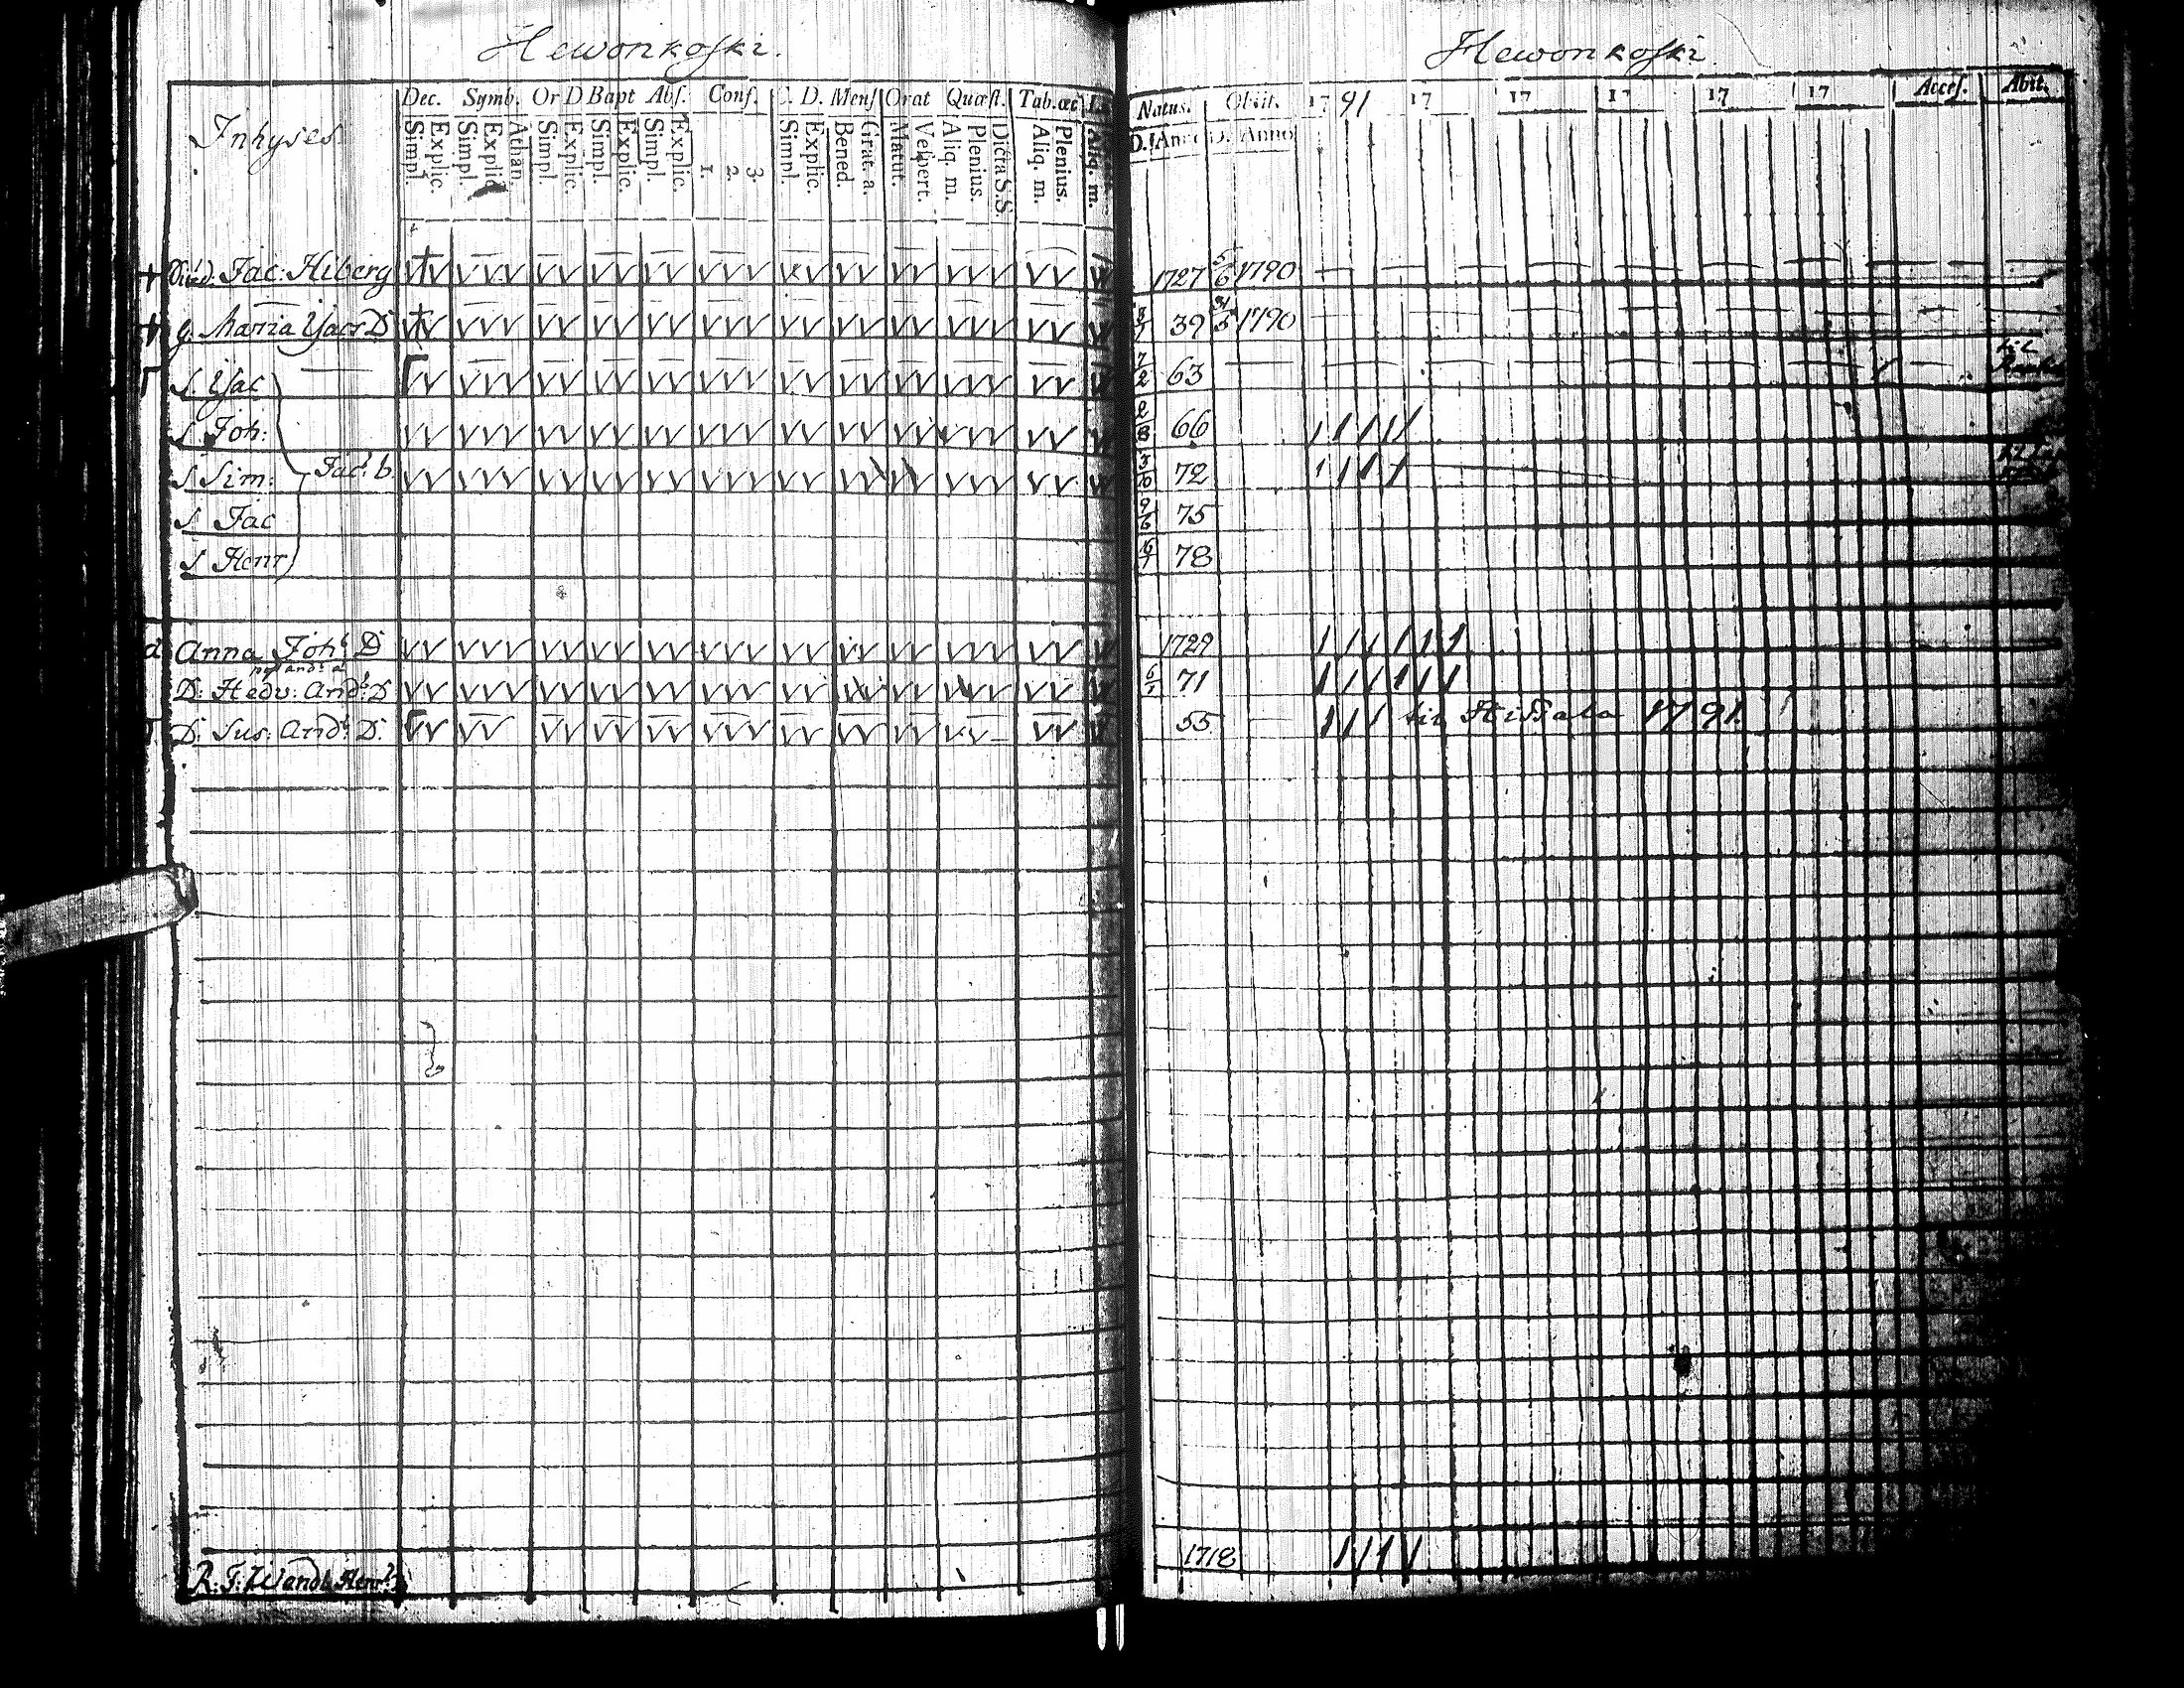 Hewonkoski.
Inhyses.
Dec. Symb. Or D Bapt Abs. Conf. C. D. Mens Orat Quæst. Tab. œc
Simpl. Explic. Simpl. Explic. Athan. Simpl. Explic. Simpl. Explic. Simpl. Explic. 1. 2. 3. Simpl. Explic. Bened. Grat. a. Matut. Vespert. Aliq. m. Plenius. Dicta S. S. Aliq. m. Plenius. Aliq. m.
Jac: Hiberg
g. Maria Isacs D
S. Isac
S. Joh:
S Sim: Jac: b
S Jac
S Henr
Anna Joh: D
D: Hedv: And: D
D: Sus: And: D.
Hewonkoski.
Natus. Obiit. 17 91 17 17 17 17 17 Acces. Abit.
D. Anno D. Anno
1727 5/6 1790
39 1790
7/2 63 til
66
72
75
78
1729
71
55 til Hissala 1791.
1718